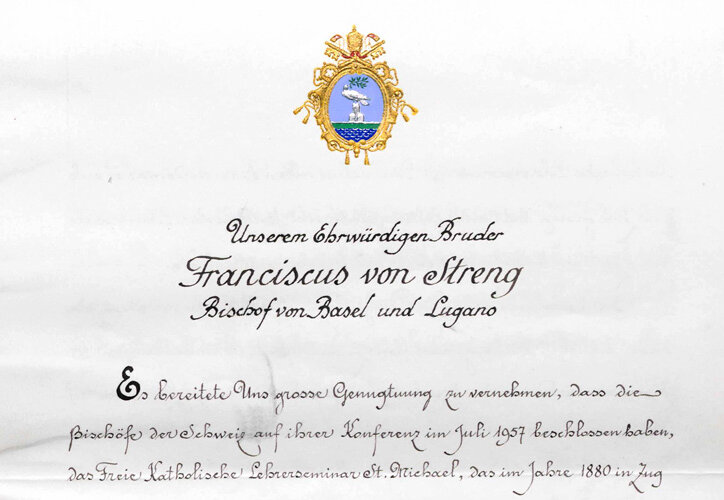 Unserem Ehrwürdigen Bruder
Franciscus von Streng
Bischof von Basel und Lugano
Es bereitete Uns grosse Genugtuung zu vernehmen, dass die
Bischöfe der Schweiz auf ihrer Konferenz im Juli 1957 beschlossen haben,
das Freie Katholische Lehrerseminar St. Michael, das im Jahre 1880 in Zug